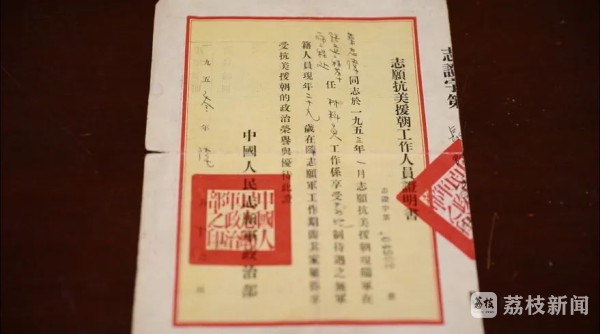 志證字第
志願抗美援朝工作人員證明書
志證字第 號
同志於一九五三年一月志願抗美援朝現隨軍在
任材料員工作係享受 制待遇之無軍
籍人員現年二十九歲在隨志願軍工作期間其家屬應享
受抗美援朝的政治榮譽與優待此證
中國人民志願軍政治部
中國人民志願軍政治部之印
一九五叁年
荔枝
荔枝新闻